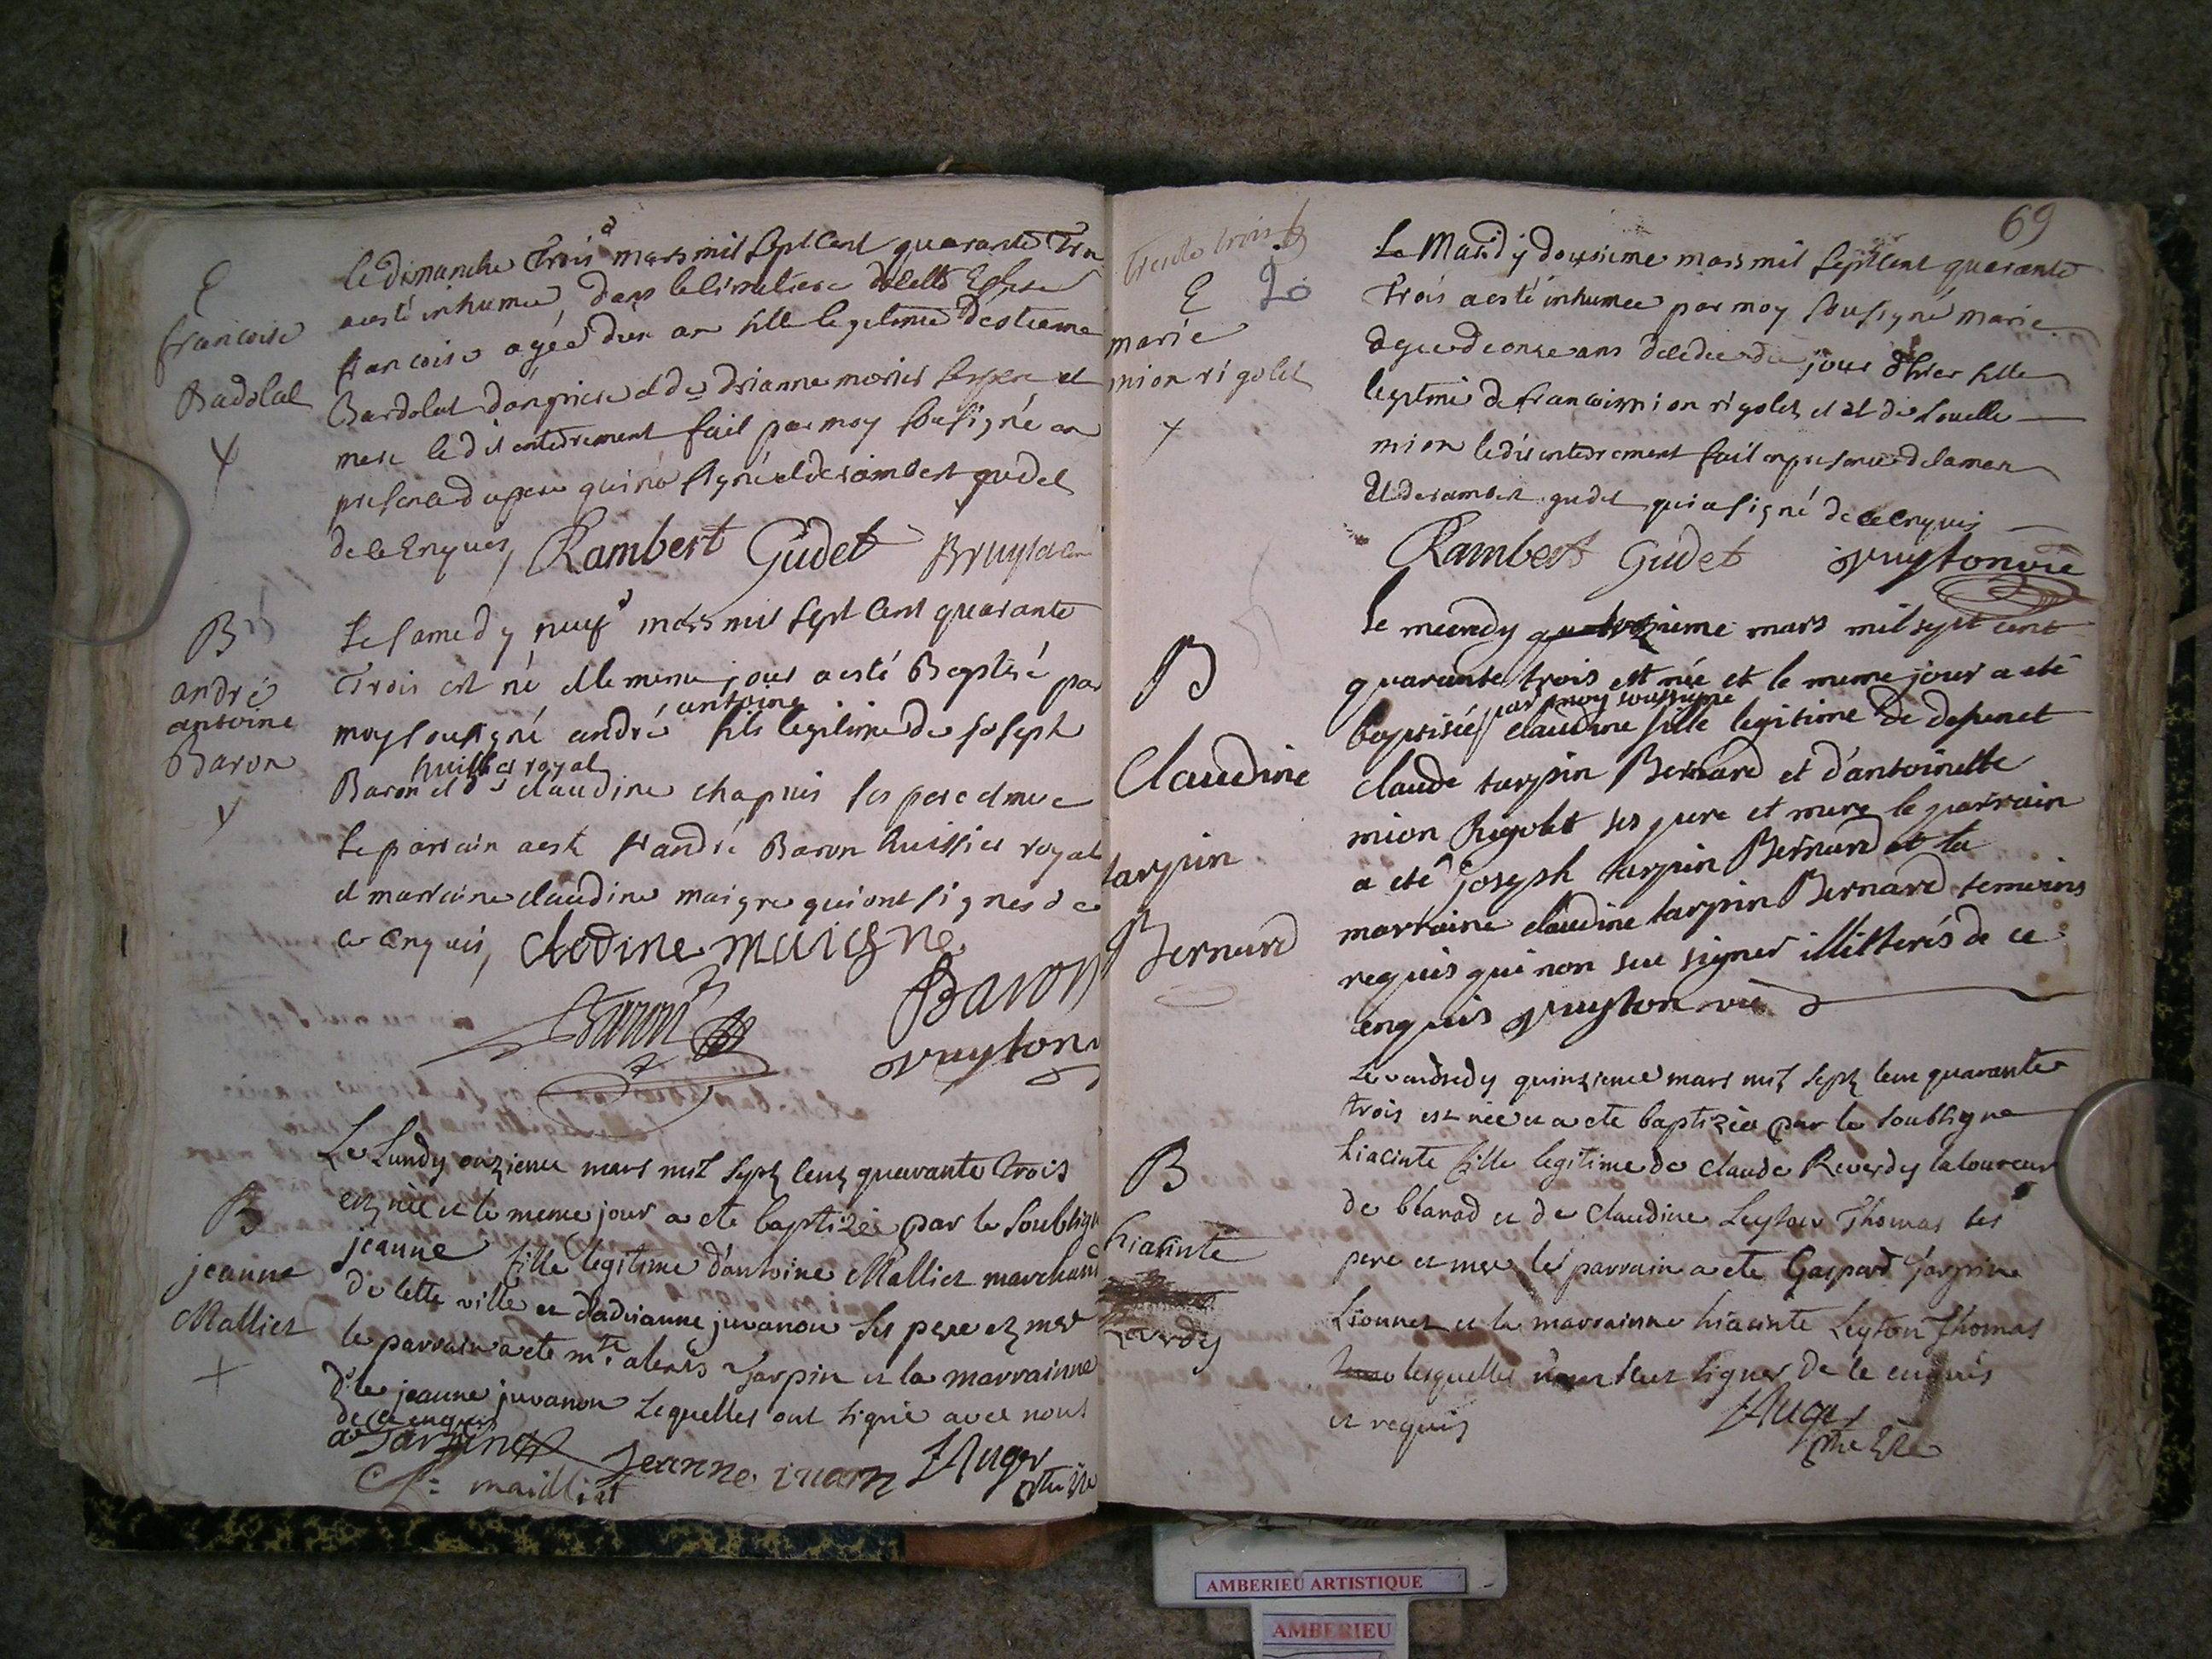 E
francoise
Badolat
le dimanche trois mars mil sept cent quarante
a esté inhumée dans le cimetiere de cette Eglise
francoise agée d'un an fille legitime d'estienne
Bardolat et de drianne ses pere et
mere ledit enterrement fait par moy sousigné en
presence du pere qui n'a signé et de rambert gudet
de ce Enquis, Rambert Gudet
B
andré
antoine
Baron
le samedy neuf mars mil sept cent quarante
trois est né et le meme jour a esté Baptisé par
antoine
moy sousigné andré fils legitime de joseph
huissier royal
Baron et de claudine chapuis ses pere et mere
le parrain a esté sr andré Baron huissier royal
et marraine claudine maigre qui ont signés de
ce enquis, clodine maigre
Baron
Baron
B
jeanne
Malliet
Le Lundy onzieme mars mil sept cent quarante trois
est née et le meme jour a ete baptizée par le soubsigné
jeanne fille legitime d'antoine Malliet marchand
de cette ville et d'adrianne juvanon ses pere et mere
le parrain a ete mre alexis Tarpin et la marrainne
dlle jeanne juvanon Lequelles ont signé avec nous
de ce enquis
a Tarpin Jeanne JAuger
maillet
69
trente trois
E 20
marie
mion rigolet
Le Mardy dousieme mars mil sept cent quarante
trois a esté inhumee par moy sousigné marie
agee de onse ans decedee du jour d'hier fille
legitime de francois mion rigolet et de
mion ledit enterrement fait en presence de
et de rambert gudet qui a signé de ce enquis
Rambert Gudet
B
Claudine
tarpin
Bernard
le quatorzieme mars mil sept cent
quarante trois est née et le meme jour a eté
par moy soussigné
baptisée claudine fille legitime de defunct
claude tarpin Bernard et d'antoinette
mion Rigolet ses pere et mere le parrain
a eté joseph tarpin Bernard et la
marraine claudine tarpin Bernard temoins
requis qui non sceu signer illitterés de ce
enquis
B
hiacinte
Reverdy
Le vendredy quinzieme mars mil sept cent quarante
trois est née et a ete baptizée par le soubsigne
hiacinte fille legitime de claude Reverdy laboureur
de blanad et de claudine Leyton Thomas ses
pere et mere le parrain a ete Gaspard Tarpin
Lionnet et la marrainne hiacinte Leyton Thomas
lesquelles n'ont sceu signer de ce enquis
et requis JAuger
AMBERIEU ARTISTIQUE
AMBERIEU